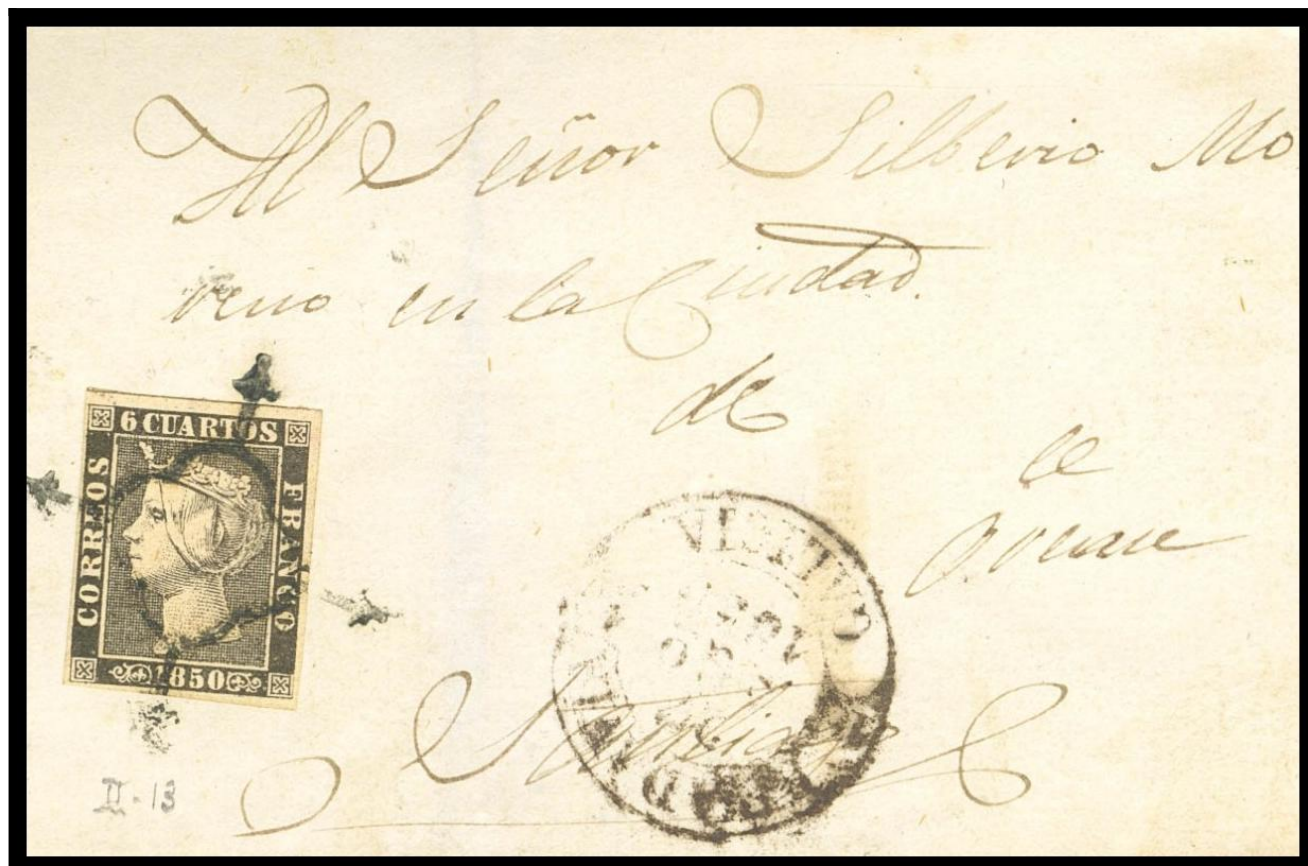 Al Señor Silberio Mo
reno en la Ciudad.
de
Orense
6 CUARTOS
CORREOS
FRANCO
1850
Santiago
II-13